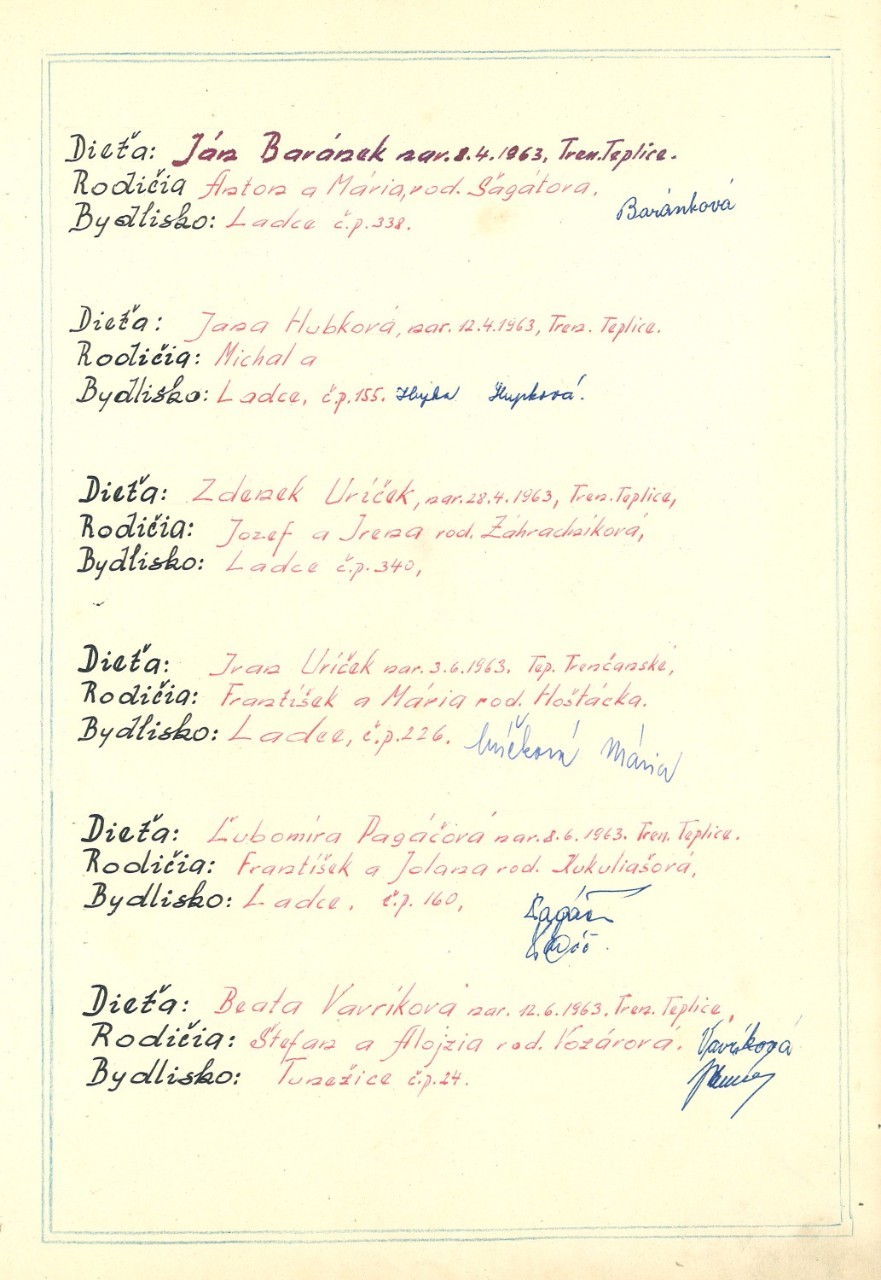 Dieťa: Ján Baránek nar. 8.4.1963, Tren. Teplice.
Rodičia Anton a Mária, rod. Šagátova.
Bydlisko: Ladce č.p. 338. Baránková
Dieťa: Jana Hubková, nar. 12.4.1963, Tren. Teplice.
Rodičia: Michal a
Bydlisko: Ladce, č.p. 155. Hupková.
Dieťa: Zdenek Uríček, nar. 28.4.1963, Tren. Teplice,
Rodičia: Jozef a Irena rod. Záhradníková,
Bydlisko: Ladce č.p. 340,
Dieťa: Ivan Uríček nar. 3.6.1963. Tep. Trenčanské,
Rodičia: František a Mária rod. Hoštácka.
Bydlisko: Ladce, č.p. 226. Uríčková Mária
Dieťa: Ľubomíra Pagáčová nar. 8.6.1963. Tren. Teplice.
Rodičia: František a Jolana rod. Kukuliašová,
Bydlisko: Ladce, č.p. 160,
Dieťa: Beata Vavríková nar. 12.6.1963. Tren. Teplice,
Rodičia: Štefan a Alojzia rod. Vozárová. Vavríková
Bydlisko: Tunežice č.p. 24.